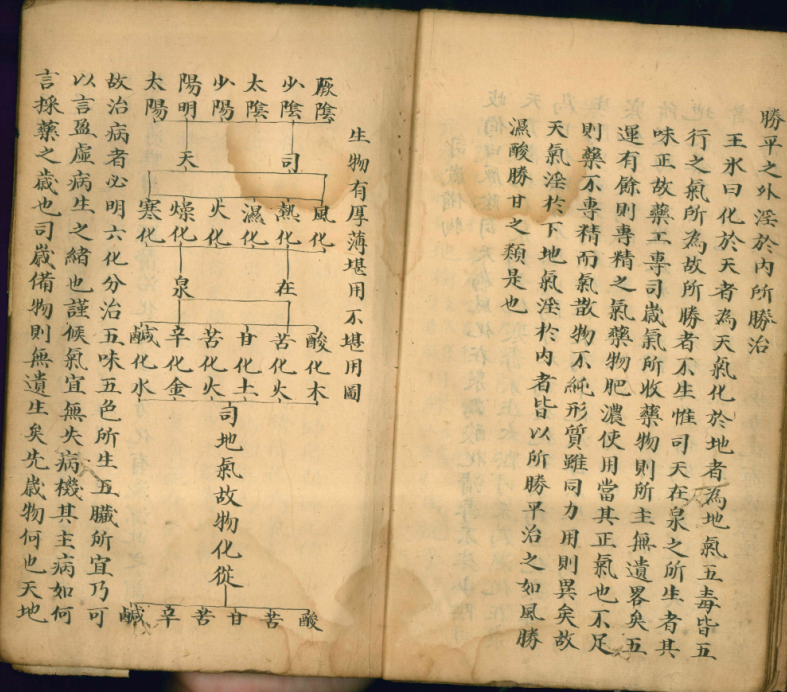 勝平之外淫於内所勝治
王氷曰化於天者為天氣化於地者為地氣五毒皆五
行之氣所為故所勝者不生惟司天在泉之所生者其
味正故藥工專司歳氣所收藥物則所主無遺畧矣五
運有餘則專精之氣藥物肥濃使用當其正氣也不足
則藥不專精而氣散物不純形質雖同力用則異矣故
天氣淫於下地氣淫於内者皆以所勝平治之如風勝
濕酸勝甘之類是也
生物有厚薄堪用不堪用圖
厥陰 少陰 太陰 少陽 陽明 太陽
司 天
風化 熱化 濕化 火化 燥化 寒化
在 泉
酸化木 苦化火 甘化土 苦化火 辛化金 鹹化水
司地氣故物化從
酸 苦 甘 苦 辛 鹹
故治病者必明六化分治五味五色所生五臟所宜乃可
以言盈虛病生之緒也謹候氣宜無失病機其主病如何
言採藥之歳也司歳備物則無遺生矣先歳物何也天地